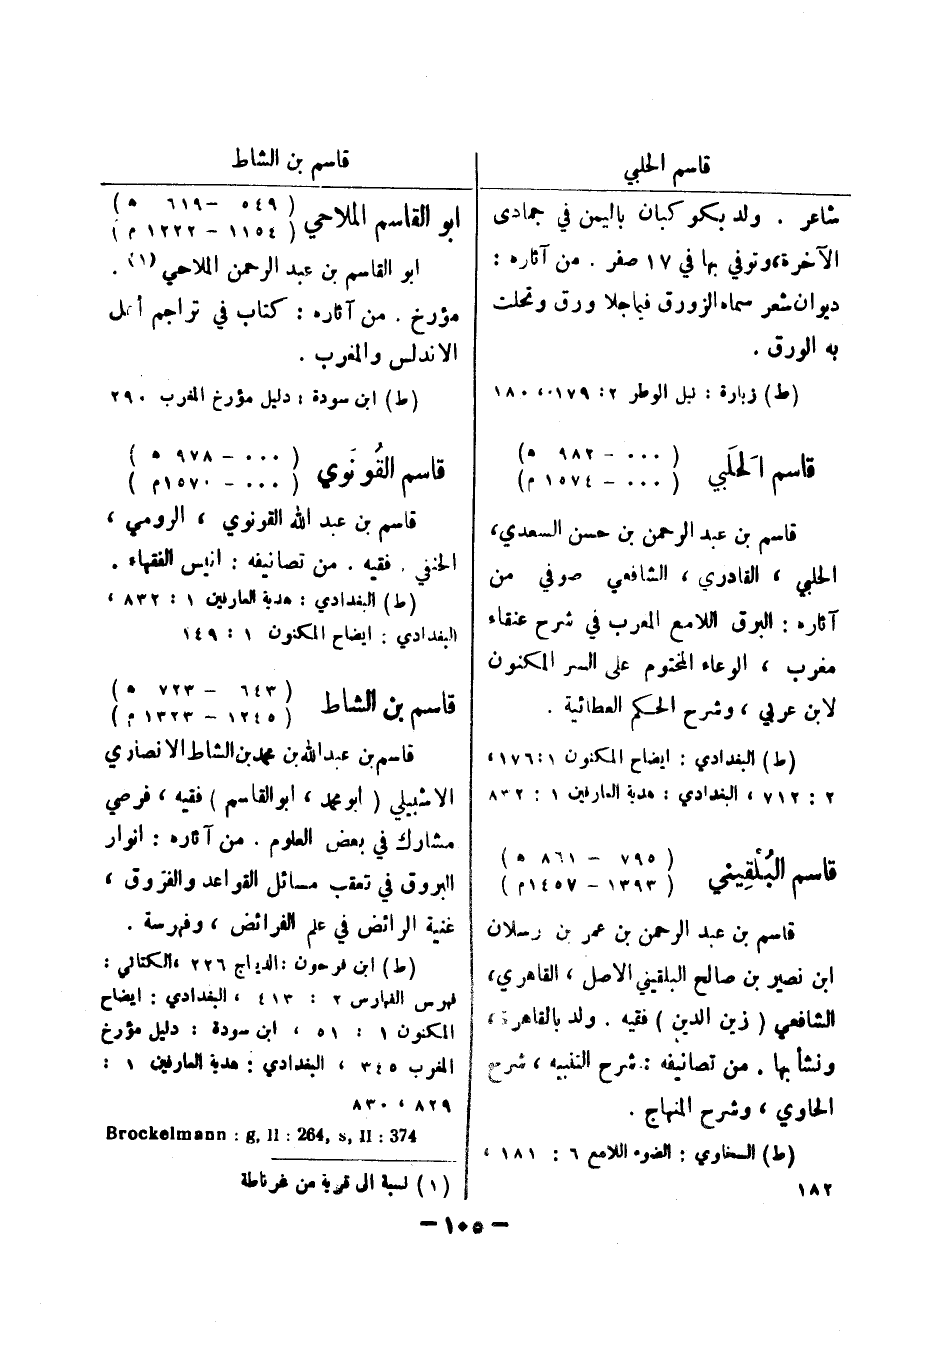 قاسم الحلبي
شاعر . ولد بكوكبان باليمن في جمادى
الآخرة، وتوفي بها في ١٧ صفر . من آثاره :
ديوان شعر سماه الزورق فيما جلا ورق وتحلت
به الورق .
(ط) زبارة : نيل الوطر ٢ : ١٧٩، ١٨٠
قاسم الحَلَبي
( ٠٠٠ – ٩٨٢ ه )
( ٠٠٠ – ١٥٧٤ م )
قاسم بن عبد الرحمن بن حسن السعدي،
الحلبي ، القادري ، الشافعي صوفي من
آثاره : البرق اللامع المعرب في شرح عنقاء
مغرب ، الوعاء المختوم على السر المكنون
لابن عربي ، وشرح الحكم العطائية .
(ط) البغدادي : ايضاح المكنون ١ : ١٧٦،
٢ : ٧١٢ ، البغدادي : هدية العارفين ١ : ٨٣٢
قاسم البُلْقِيني
( ٧٩٥ – ٨٦١ ه )
( ١٣٩٣ – ١٤٥٧ م )
قاسم بن عبد الرحمن بن عمر بن رسلان
ابن نصير بن صالح البلقيني الاصل ، القاهري،
الشافعي ( زين الدين ) فقيه . ولد بالقاهرة،
ونشأ بها . من تصانيفه : شرح التنبيه ، شرح
الحاوي ، وشرح المنهاج .
(ط) السخاوي : الضوء اللامع ٦ : ١٨١ ،
١٨٢
قاسم بن الشاط
ابو القاسم الملاحي
( ٥٤٩ – ٦١٩ ه )
( ١١٥٤ – ١٢٢٢ م )
ابو القاسم بن عبد الرحمن الملاحي (١) .
مؤرخ . من آثاره : كتاب في تراجم أهل
الاندلس والمغرب .
(ط) ابن سودة : دليل مؤرخ المغرب ٢٩٠
قاسم القُونَوي
( ٠٠٠ – ٩٧٨ ه )
( ٠٠٠ – ١٥٧٠ م )
قاسم بن عبد الله القونوي ، الرومي ،
الحنفي . فقيه . من تصانيفه : انيس الفقهاء .
(ط) البغدادي : هدية العارفين ١ : ٨٣٢ ،
البغدادي : ايضاح المكنون ١ : ١٤٩
قاسم بن الشاط
( ٦٤٣ – ٧٢٣ ه )
( ١٢٤٥ – ١٣٢٣ م )
قاسم بن عبدالله بن محمد بن الشاط الانصاري
الاشبيلي ( ابو محمد ، ابو القاسم ) فقيه ، فرضي
مشارك في بعض العلوم . من آثاره : انوار
البروق في تعقب مسائل القواعد والفروق ،
غنية الرائض في علم الفرائض ، وفهرسة .
(ط) ابن فرحون : الديباج ٢٢٦ ، الكتاني :
فهرس الفهارس ٢ : ٤١٣ ، البغدادي : ايضاح
المكنون ١ : ٥١ ، ابن سودة : دليل مؤرخ
المغرب ٣٤٥ ، البغدادي : هدية العارفين ١ :
٨٢٩ ، ٨٣٠
Brockelmann : g, II : 264, s, II : 374
(١) نسبة الى قرية من غرناطة
– ١٠٥ –